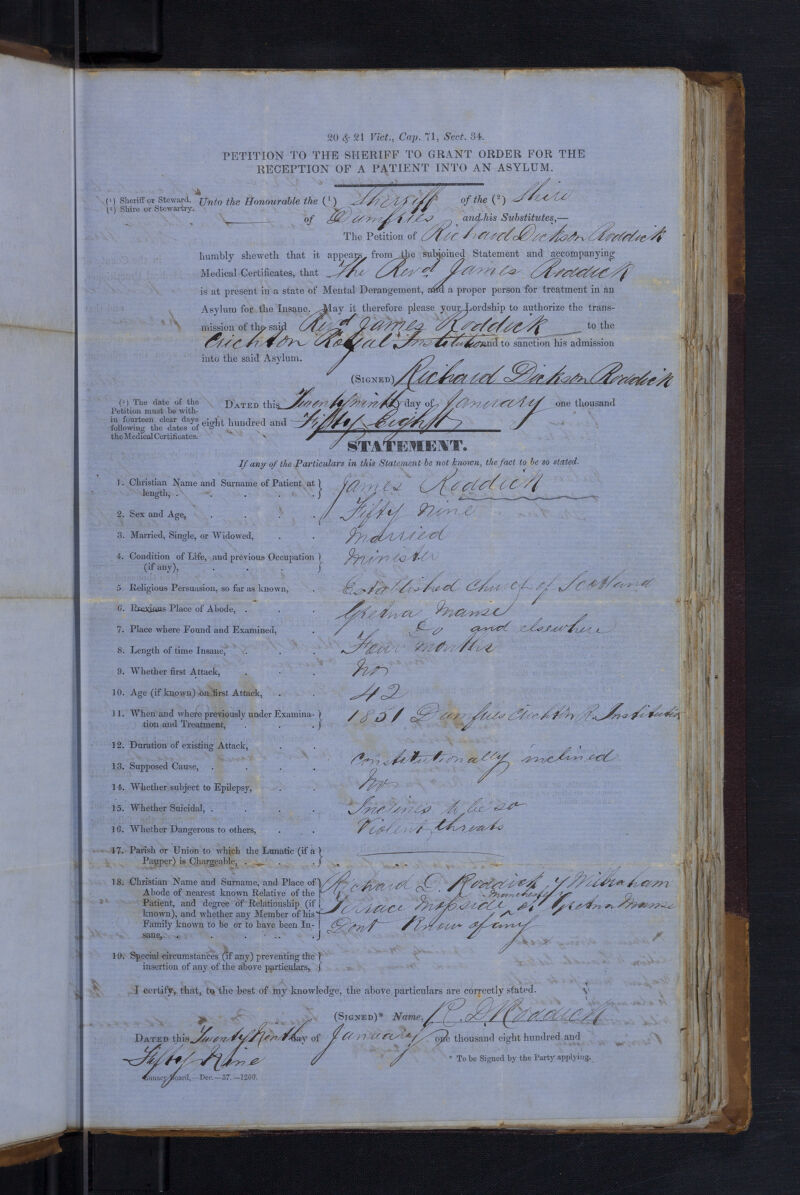 20 & 21 Vict., Cap. 71, Sect. 34.
PETITION TO THE SHERIFF TO GRANT ORDER FOR THE
RECEPTION OF A PATIENT INTO AN ASYLUM.
(1) Sheriff or Steward.
(2) Shire or Stewartry.
Unto the Honourable the (1) Sheriff of the (2) Shire
of Dumfries and his Substitutes,—
The Petition of Richard Dickson Roddick
humbly sheweth that it appears from the subjoined Statement and accompanying
Medical Certificates, that The Revd James Roddick
is at present in a state of Mental Derangement, and a proper person for treatment in an
Asylum for the Insane. May it therefore please your Lordship to authorize the trans-
mission of the said Revd James Roddick to the
Crichton Royal Institution and to sanction his admission
into the said Asylum.
(SIGNED) Richard Dickson Roddick
(3) The date of the
Petition must be with-
in fourteen clear days
following the dates of
the Medical Certificates.
DATED this Twentyninth day of January one thousand
eight hundred and Fifty Eight
STATEMENT.
If any of the Particulars in this Statement be not known, the fact to be so stated.
1. Christian Name and Surname of Patient at
length, James Roddick
2. Sex and Age, Fifty nine
3. Married, Single, or Widowed, Married
4. Condition of Life, and previous Occupation
(if any), Minister
5. Religious Persuasion, so far as known, Established Church of Scotland
6. Previous Place of Abode, Gretna Manse
7. Place where Found and Examined, Do and elsewhere
8. Length of time Insane, Four months
9. Whether first Attack, No
10. Age (if known) on first Attack, 42
11. When and where previously under Examina-
tion and Treatment, 1851 Dumfries Crichton R. Institution
12. Duration of existing Attack,
13. Supposed Cause, Constitutionally inclined
14. Whether subject to Epilepsy, No
15. Whether Suicidal, Inclines to be so
16. Whether Dangerous to others, Violent threats
17. Parish or Union to which the Lunatic (if a
Pauper) is Chargeable,
18. Christian Name and Surname, and Place of
Abode of nearest known Relative of the
Patient, and degree of Relationship (if
known), and whether any Member of his
Family known to be or to have been In-
sane,
Richard D. Roddick Wilbraham
Terrace Manchester Gretna Manse
Dont Know of any
19. Special circumstances (if any) preventing the
insertion of any of the above particulars,
I certify, that, to the best of my knowledge, the above particulars are correctly stated.
(SIGNED)* Name, R. D. Roddick
DATED this Twenty Ninth day of January one thousand eight hundred and
Fifty Nine
* To be Signed by the Party applying.
Lunacy Board,—Dec.—57.—1200.